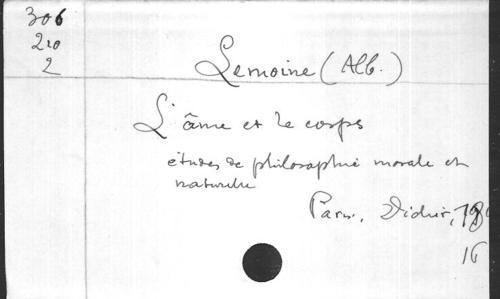 306
210
2
Lemoine (Alb.)
L'âme et le corps
études de philosophie morale et
naturelle
Paris, Didier,
16